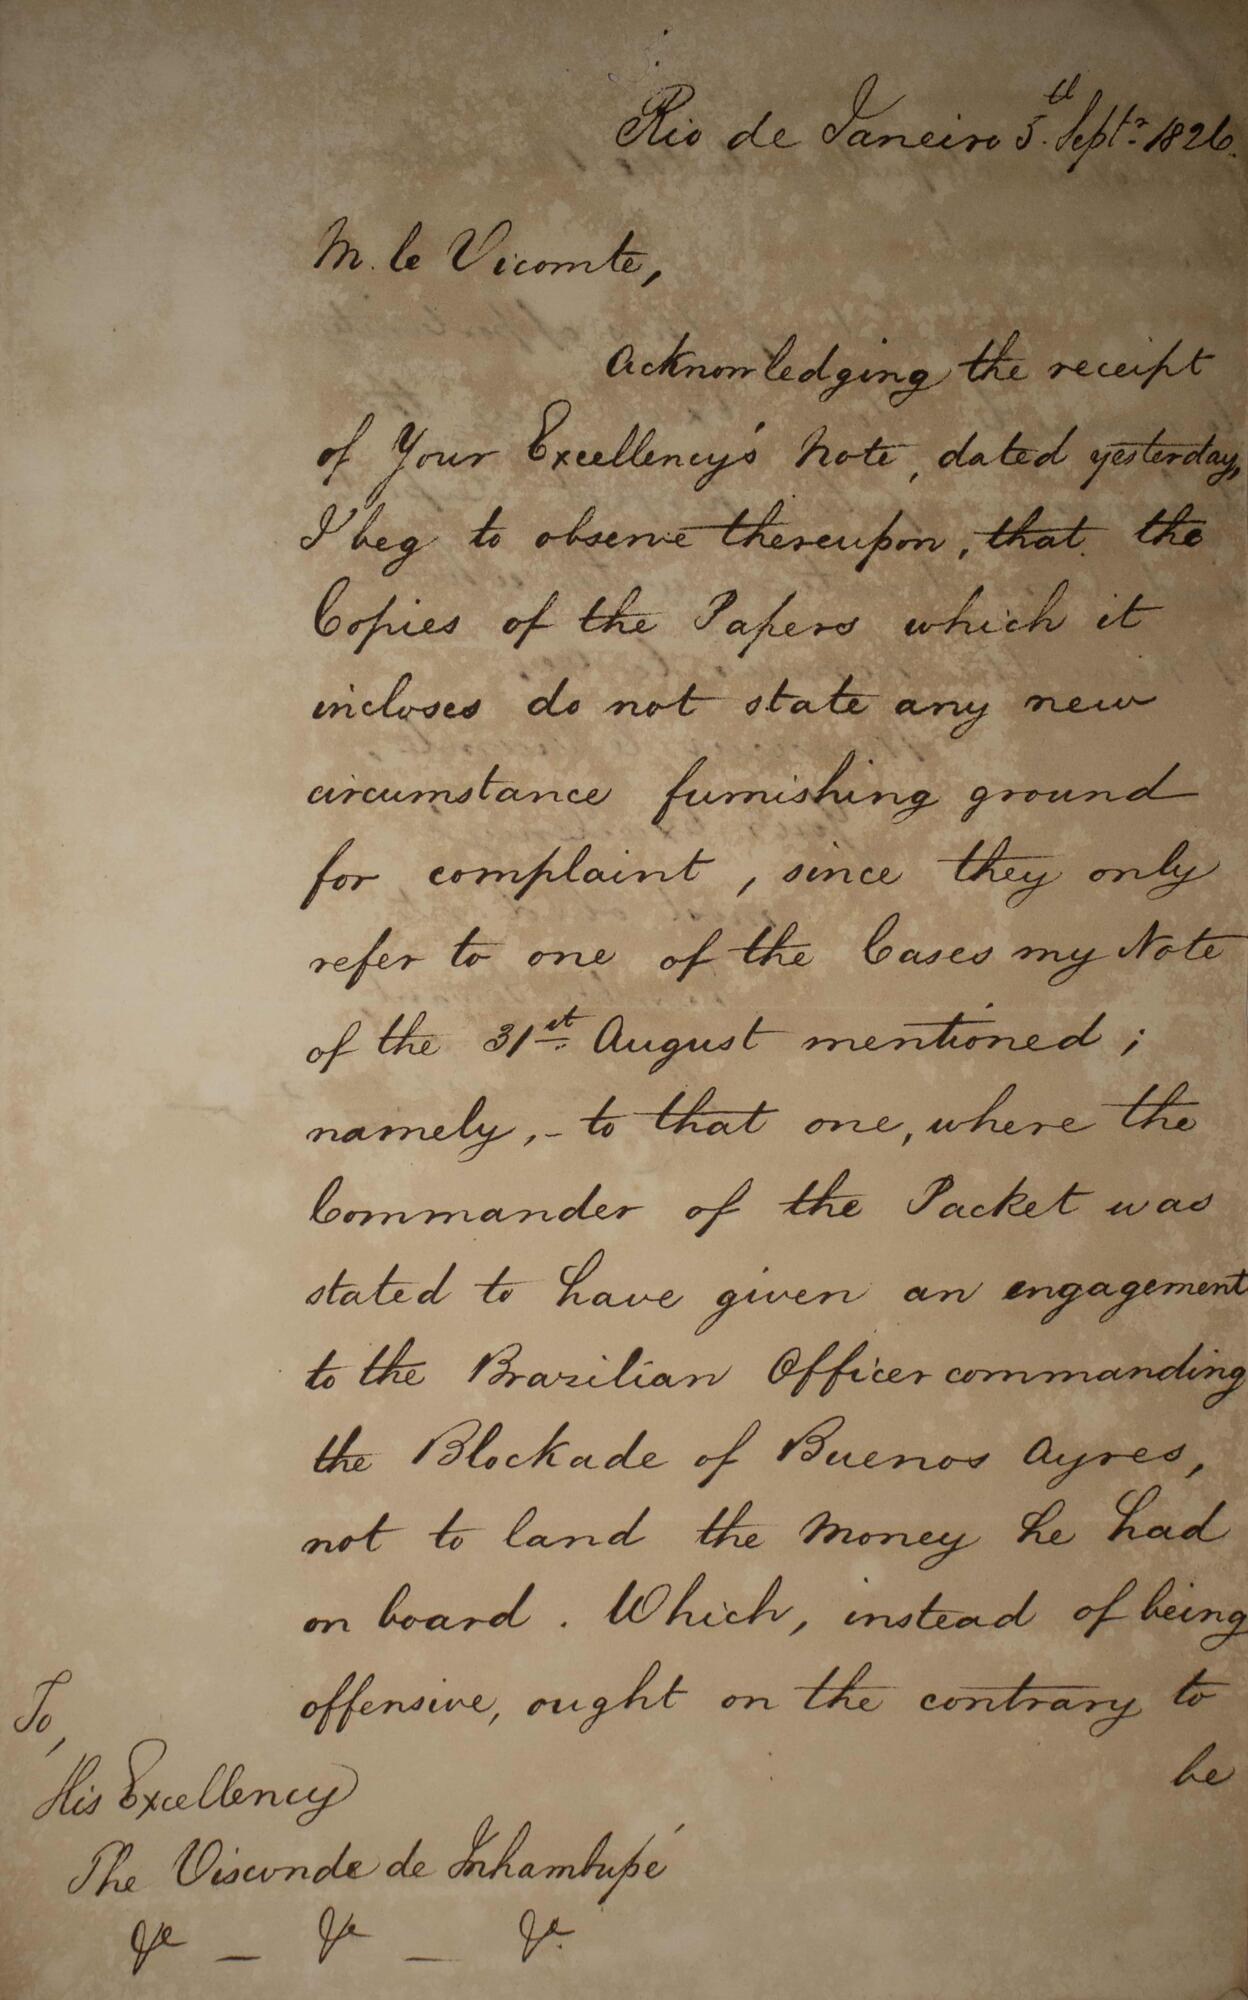 Rio de Janeiro 5.th Septr. 1826.
M. le Vicomte,
Acknowledging the receipt
of Your Excellency's Note, dated yesterday,
I beg to observe thereupon, that the
Copies of the Papers which it
incloses do not state any new
circumstance furnishing ground
for complaint, since they only
refer to one of the Cases my Note
of the 31st August mentioned;
namely, - to that one, where the
Commander of the Packet was
stated to have given an engagement
to the Brazilian Officer commanding
the Blockade of Buenos Ayres,
not to land the Money he had
on board. Which, instead of being
offensive, ought on the contrary to
be
To,
His Excellency
The Visconde de Inhambupé
&c — &c — &c.